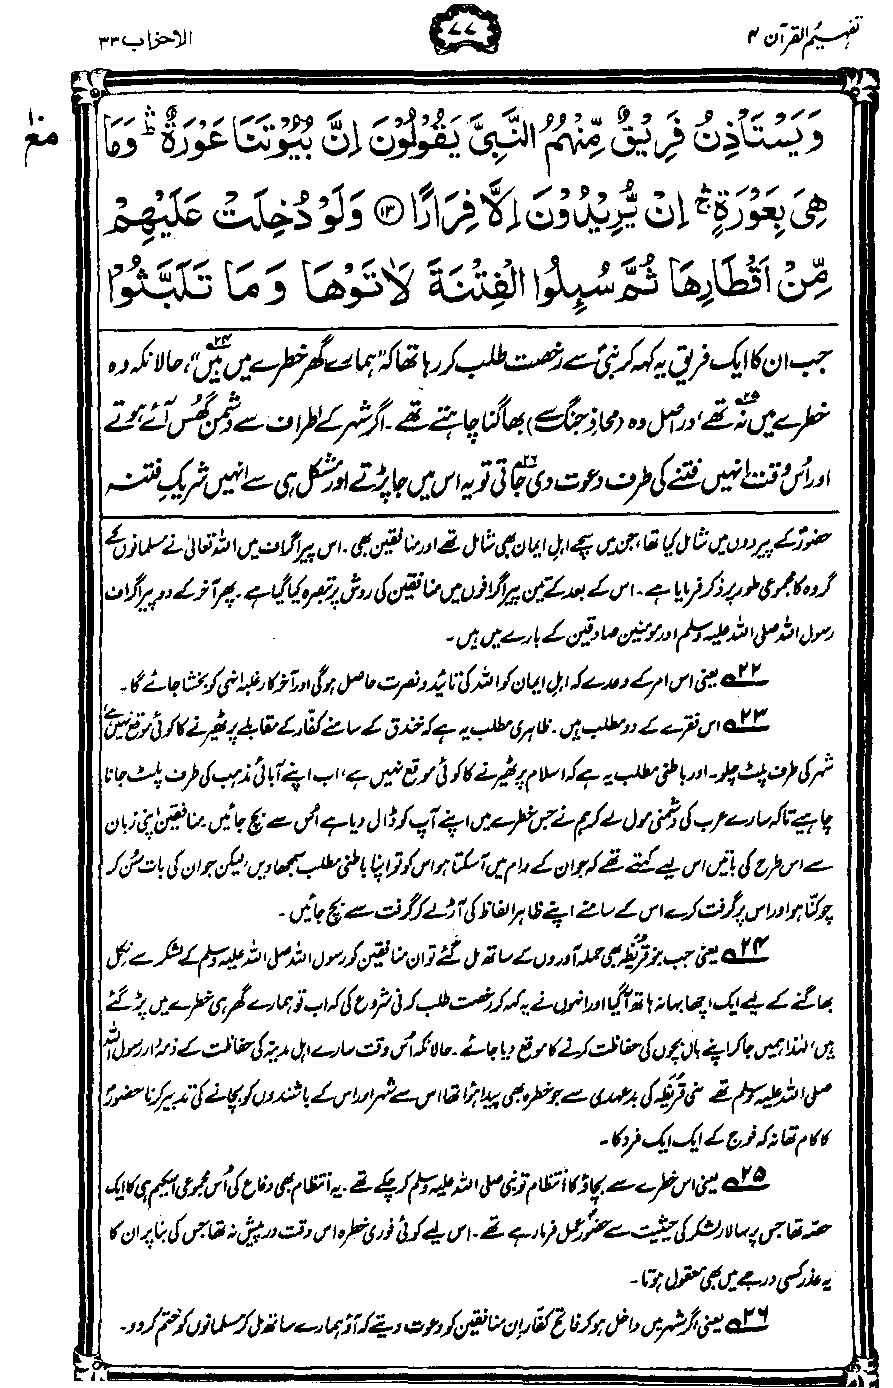 تفہیم القرآن ۴
۷۷
الاحزاب ۳۳
وَيَسْتَأْذِنُ فَرِيْقٌ مِّنْهُمُ النَّبِيَّ يَقُوْلُوْنَ اِنَّ بُيُوْتَنَا عَوْرَةٌ ۛؕ وَمَا
هِيَ بِعَوْرَةٍ ۛۚ اِنْ يُّرِيْدُوْنَ اِلَّا فِرَارًا ﴿۱۳﴾ وَلَوْ دُخِلَتْ عَلَيْهِمْ
مِّنْ اَقْطَارِهَا ثُمَّ سُىِٕلُوا الْفِتْنَةَ لَاٰتَوْهَا وَمَا تَلَبَّثُوْا
جب ان کا ایک فریق یہ کہہ کر نبیؐ سے رخصت طلب کر رہا تھا کہ ”ہمارے گھر خطرے میں ہیں۲۴،“ حالانکہ وہ
خطرے میں نہ۲۵ تھے، دراصل وہ (محاذِ جنگ سے) بھاگنا چاہتے تھے۔ اگر شہر کے اطراف سے دشمن گھُس آئے ہوتے
اور اُس وقت انہیں فتنے کی طرف دعوت دی جاتی۲۶ تو یہ اس میں جا پڑتے اور مشکل ہی سے انہیں شریکِ فتنہ
حضورؐ کے پیرووں میں شامل کیا تھا، جن میں سچے اہلِ ایمان بھی شامل تھے اور منافقین بھی۔ اس پیراگراف میں اللہ تعالیٰ نے مسلمانوں کے
گروہ کا مجموعی طور پر ذکر فرمایا ہے۔ اس کے بعد کے تین پیراگرافوں میں منافقین کی روش پر تبصرہ کیا گیا ہے۔ پھر آخر کے دو پیراگراف
رسول اللہ صلی اللہ علیہ وسلم اور مومنین صادقین کے بارے میں ہیں۔
۲۲ یعنی اس امر کے وعدے کہ اہلِ ایمان کو اللہ کی تائید و نصرت حاصل ہوگی اور آخر کار غلبہ انہی کو بخشا جائے گا۔
۲۳ اس فقرے کے دو مطلب ہیں۔ ظاہری مطلب یہ ہے کہ خندق کے سامنے کفّار کے مقابلے پر ٹھیرنے کا کوئی موقع نہیں ہے،
شہر کی طرف پلٹ چلو۔ اور باطنی مطلب یہ ہے کہ اسلام پر ٹھیرنے کا کوئی موقع نہیں ہے، اب اپنے آبائی مذہب کی طرف پلٹ جانا
چاہیے تاکہ سارے عرب کی دشمنی مول لے کر ہم نے جس خطرے میں اپنے آپ کو ڈال دیا ہے اُس سے بچ جائیں۔ منافقین اپنی زبان
سے اس طرح کی باتیں اس لیے کہتے تھے کہ جو ان کے دام میں آ سکتا ہو اس کو تو اپنا باطنی مطلب سمجھا دیں، لیکن جو ان کی بات سُن کر
چوکنّا ہو اور اس پر گرفت کرے اس کے سامنے اپنے ظاہر الفاظ کی آڑ لے کر گرفت سے بچ جائیں۔
۲۴ یعنی جب بنو قریظہ بھی حملہ آوروں کے ساتھ مل گئے تو ان منافقین کو رسول اللہ صلی اللہ علیہ وسلم کے لشکر سے نکل
بھاگنے کے لیے ایک اچھا بہانہ ہاتھ آگیا اور انہوں نے یہ کہہ کر رخصت طلب کرنی شروع کی کہ اب تو ہمارے گھر ہی خطرے میں پڑ گئے
ہیں، لہٰذا ہمیں جا کر اپنے بال بچوں کی حفاظت کرنے کا موقع دیا جائے۔ حالانکہ اُس وقت سارے اہلِ مدینہ کی حفاظت کے ذمّہ دار رسول اللہ
صلی اللہ علیہ وسلم تھے۔ بنی قریظہ کی بدعہدی سے جو خطرہ بھی پیدا ہُوا تھا اس سے شہر اور اس کے باشندوں کو بچانے کی تدبیر کرنا حضورؐ
کا کام تھا نہ کہ فوج کے ایک ایک فرد کا۔
۲۵ یعنی اس خطرے سے بچاؤ کا انتظام تو نبی صلی اللہ علیہ وسلم کر چکے تھے۔ یہ انتظام بھی دفاع کی اُس مجموعی اسکیم ہی کا ایک
حصّہ تھا جس پر سالارِ لشکر کی حیثیت سے حضورؐ عمل فرما رہے تھے۔ اس لیے کوئی فوری خطرہ اس وقت درپیش نہ تھا جس کی بنا پر ان کا
یہ عذر کسی درجے میں بھی معقول ہوتا۔
۲۶ یعنی اگر شہر میں داخل ہو کر فاتح کفار اِن منافقین کو دعوت دیتے کہ آؤ ہمارے ساتھ مل کر مسلمانوں کو ختم کر دو۔